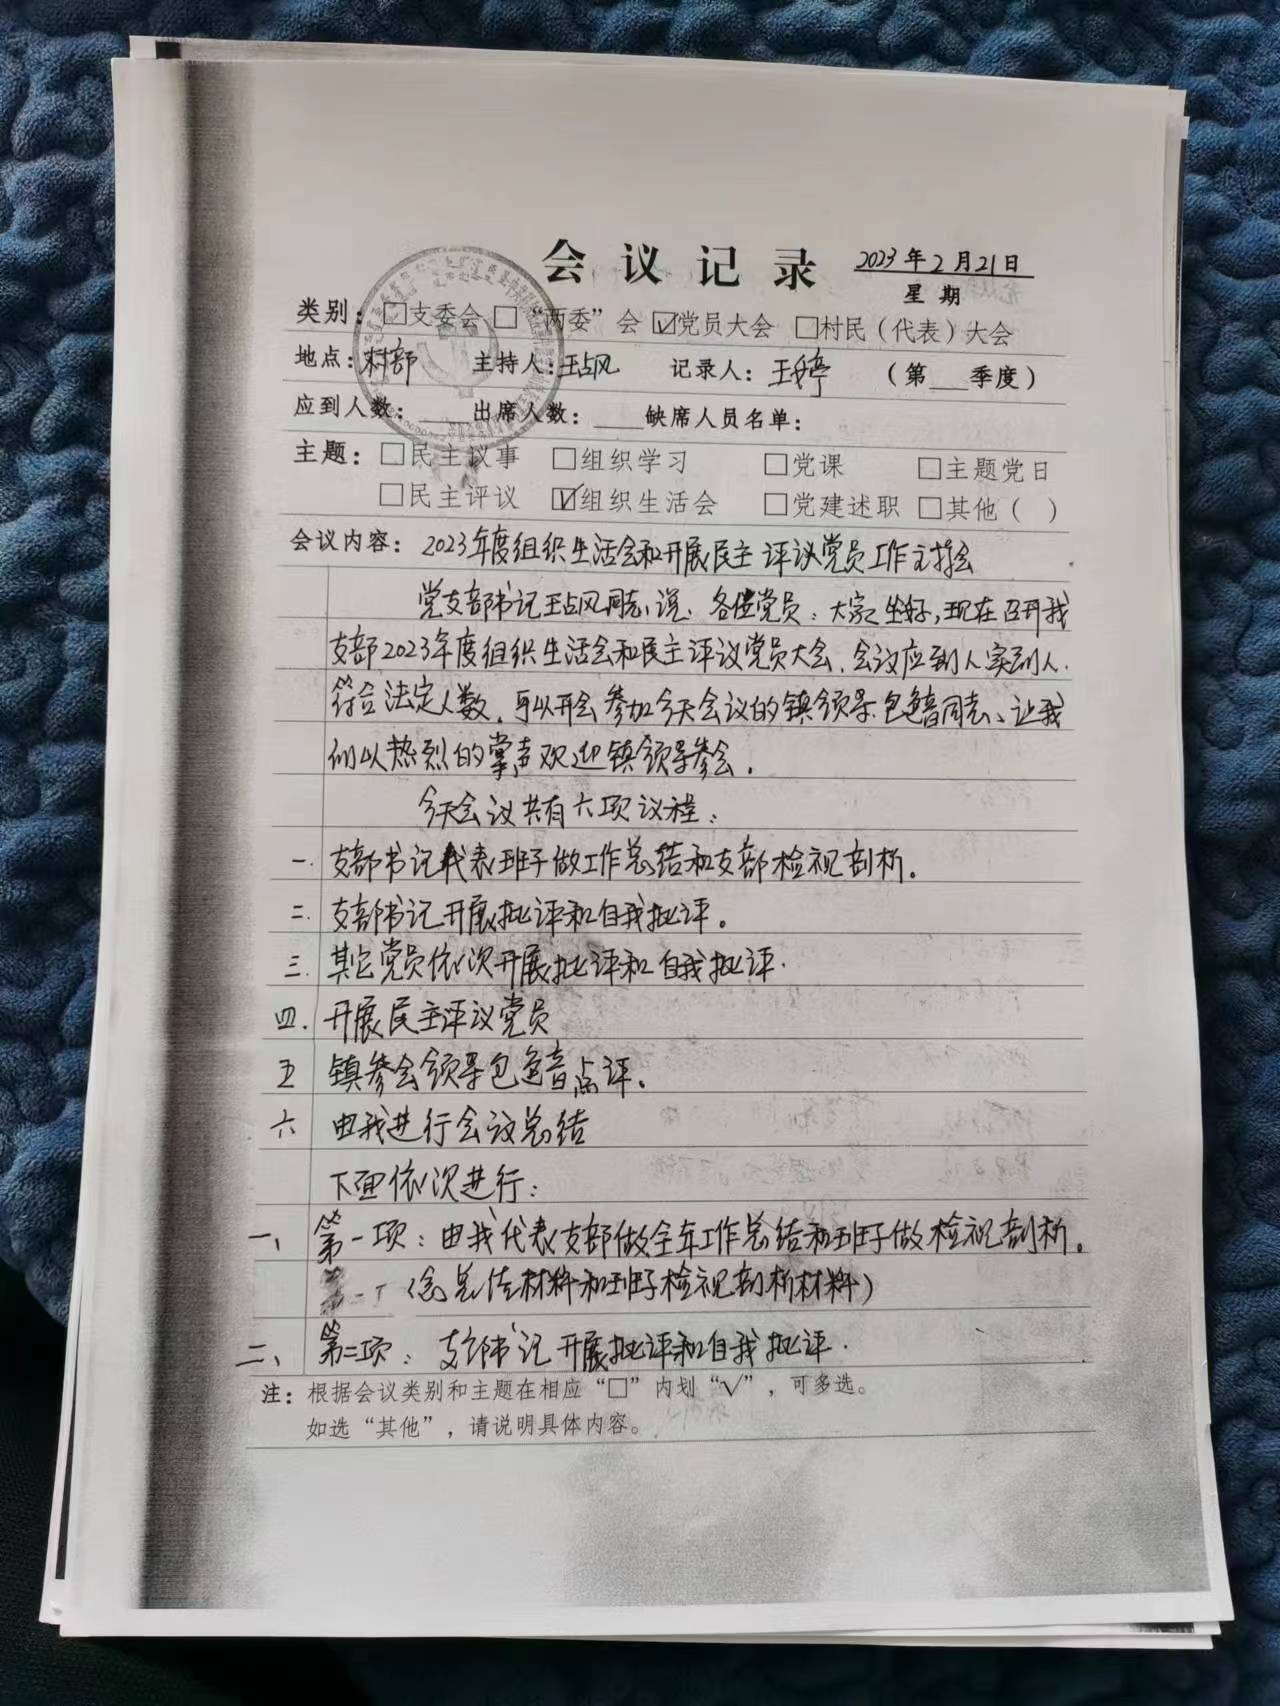 会议记录 2023年2月21日
星期
类别：□支委会 □“两委”会 ☑党员大会 □村民（代表）大会
地点：村部 主持人：王占风 记录人：王婷 （第___季度）
应到人数：____出席人数：____缺席人员名单：
主题：□民主议事 □组织学习 □党课 □主题党日
□民主评议 ☑组织生活会 □党建述职 □其他（ ）
会议内容：2023年度组织生活会和开展民主评议党员工作主持会
党支部书记王占风同志说：各位党员：大家坐好，现在召开我
支部2023年度组织生活会和民主评议党员大会，会议应到人实到人，
符合法定人数，可以开会参加今天会议的镇领导包色音同志、让我
们以热烈的掌声欢迎镇领导参会。
今天会议共有六项议程：
一、支部书记代表班子做工作总结和支部检视剖析。
二、支部书记开展批评和自我批评。
三、其它党员依次开展批评和自我批评.
四、开展民主评议党员
五 镇参会领导包色音点评。
六 由我进行会议总结
下面依次进行：
一、第一项：由我代表支部做全年工作总结和班子做检视剖析。
（念总结材料和班子检视剖析材料）
二、第二项：支部书记开展批评和自我批评.
注：根据会议类别和主题在相应“□”内划“√”，可多选。
如选“其他”，请说明具体内容。